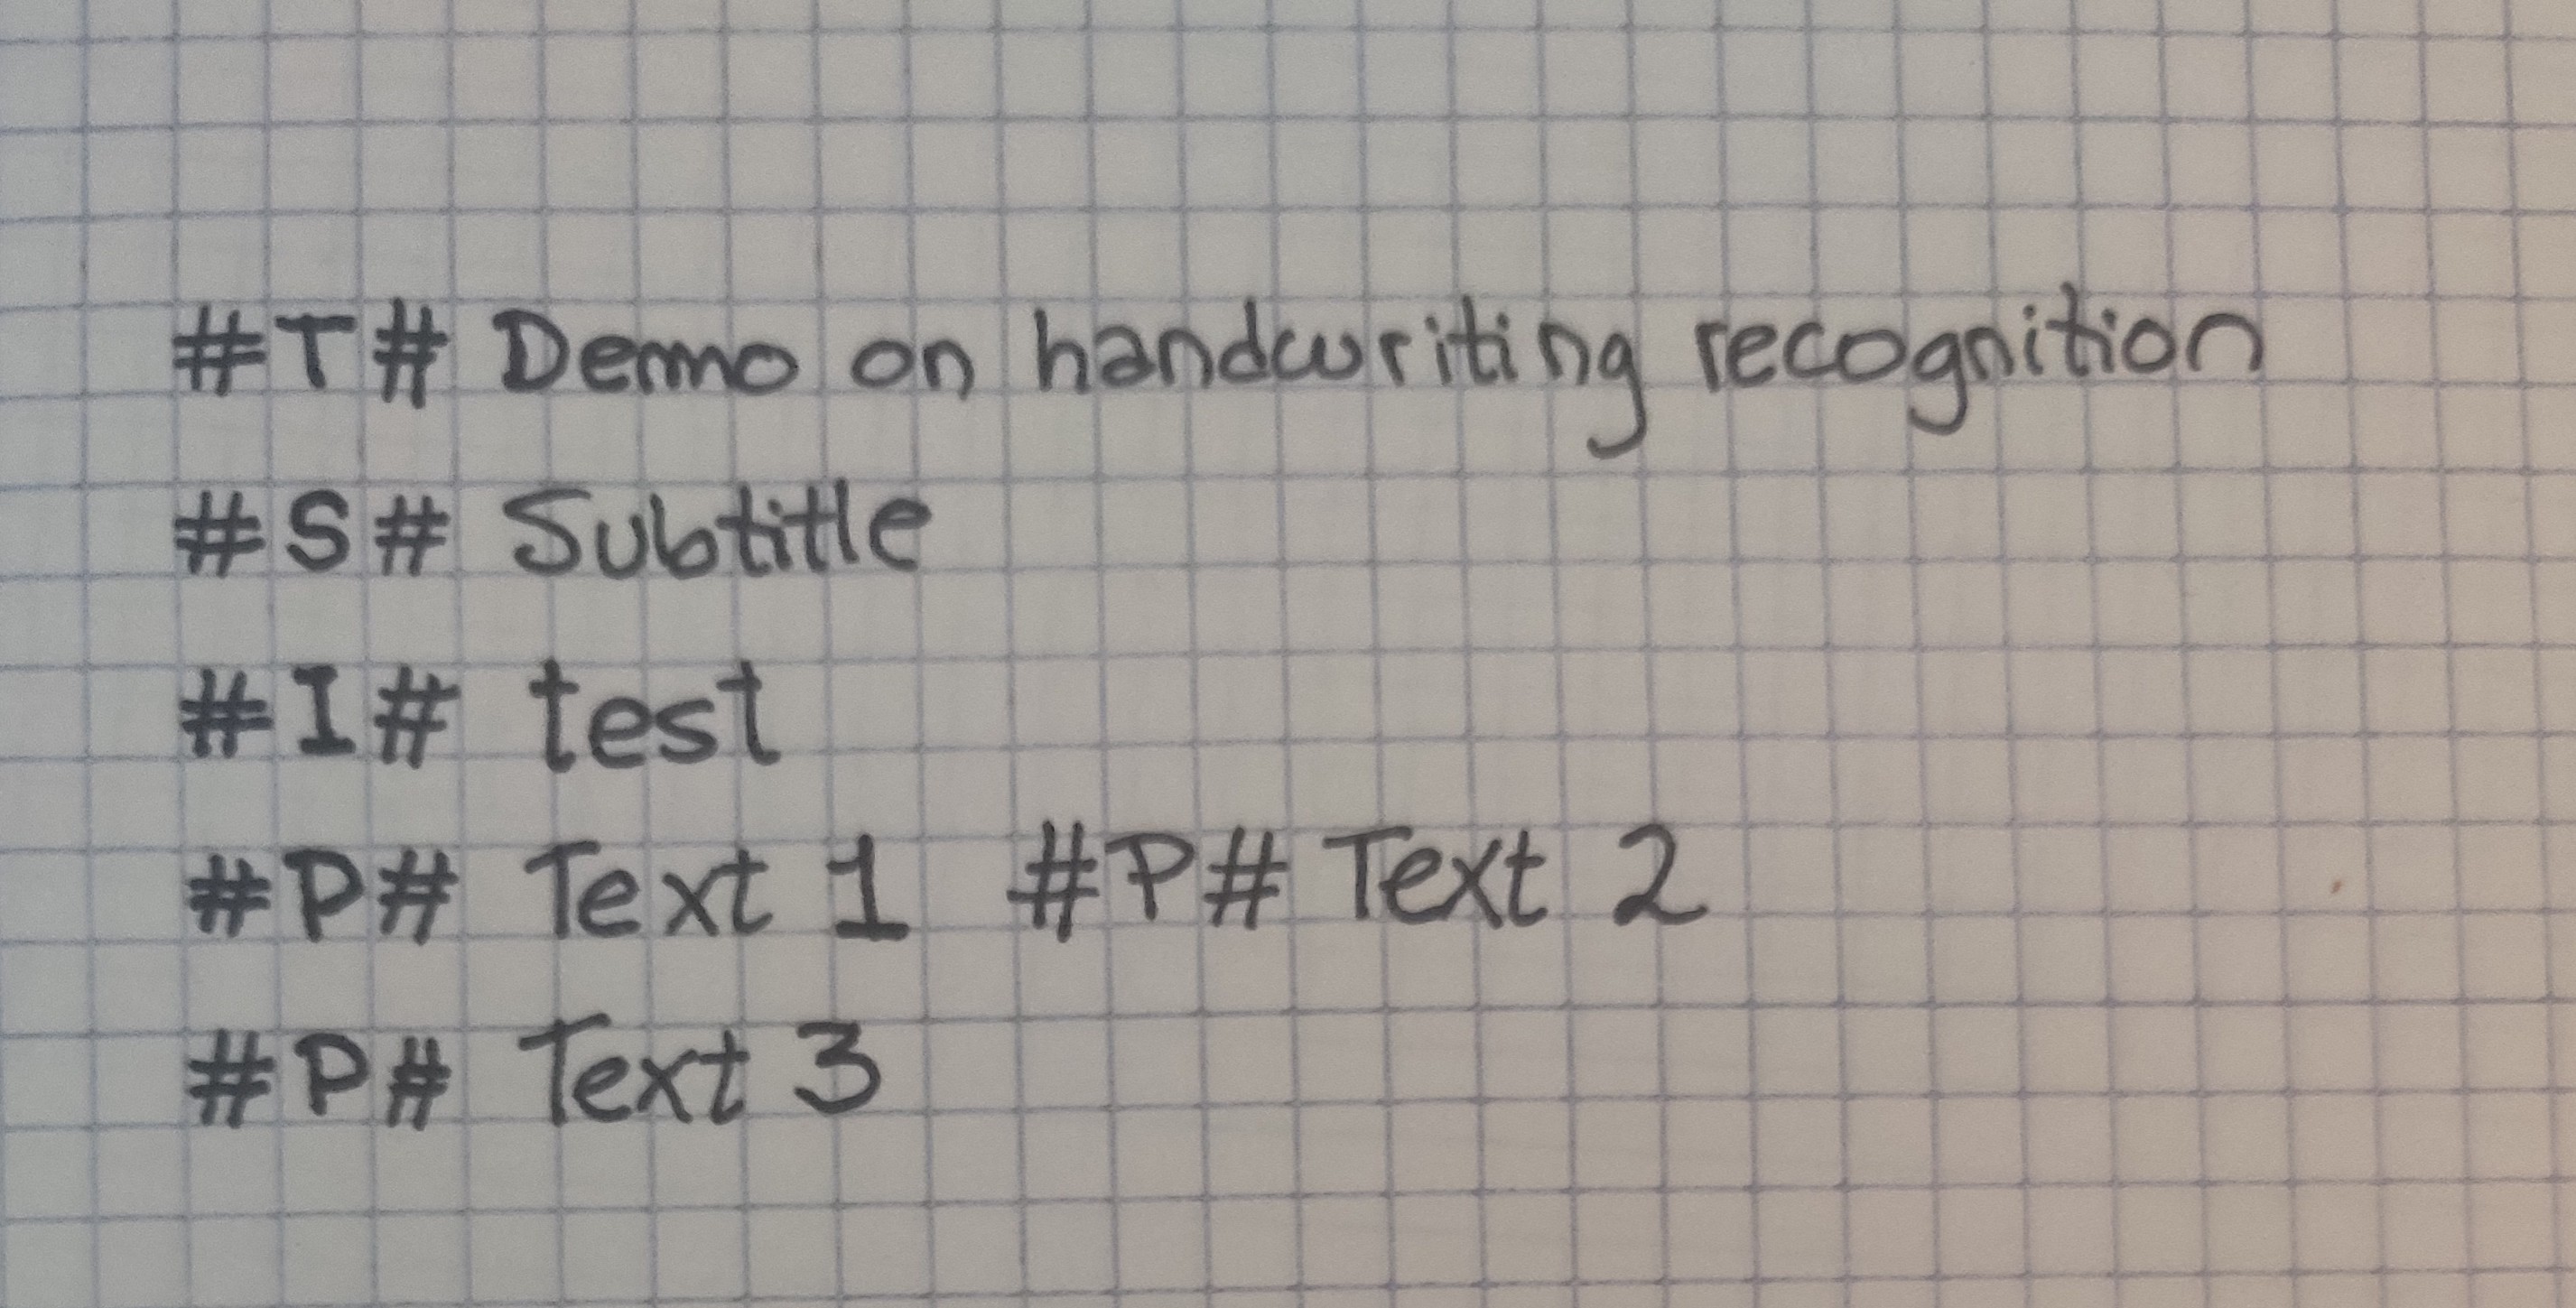 #T# Demo on handwriting recognition
#S# Subtitle
#I# test
#P# Text 1 #P# Text 2
#P# Text 3